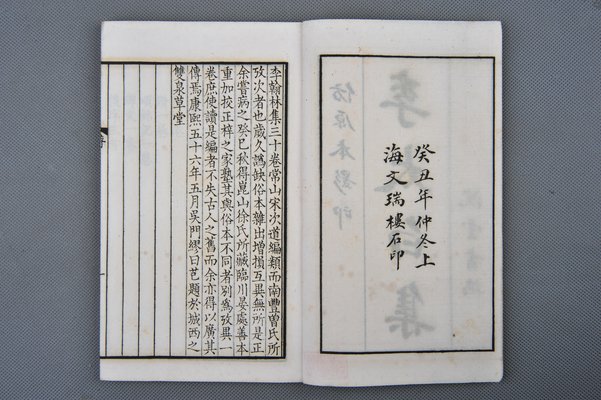 癸丑年仲冬上
海文瑞樓石印
李翰林集三十卷常山宋次道編類而南豐曾氏所
攷次者也歲久譌缺俗本雜出增損互異無所是正
余嘗病之癸巳秋得崑山徐氏所藏臨川晏處善本
重加挍正梓之家塾其與俗本不同者別為攷異一
卷庶使讀是編者不失古人之舊而余亦得以廣其
傳焉康熙五十六年五月吳門繆曰芑題於城西之
雙泉草堂